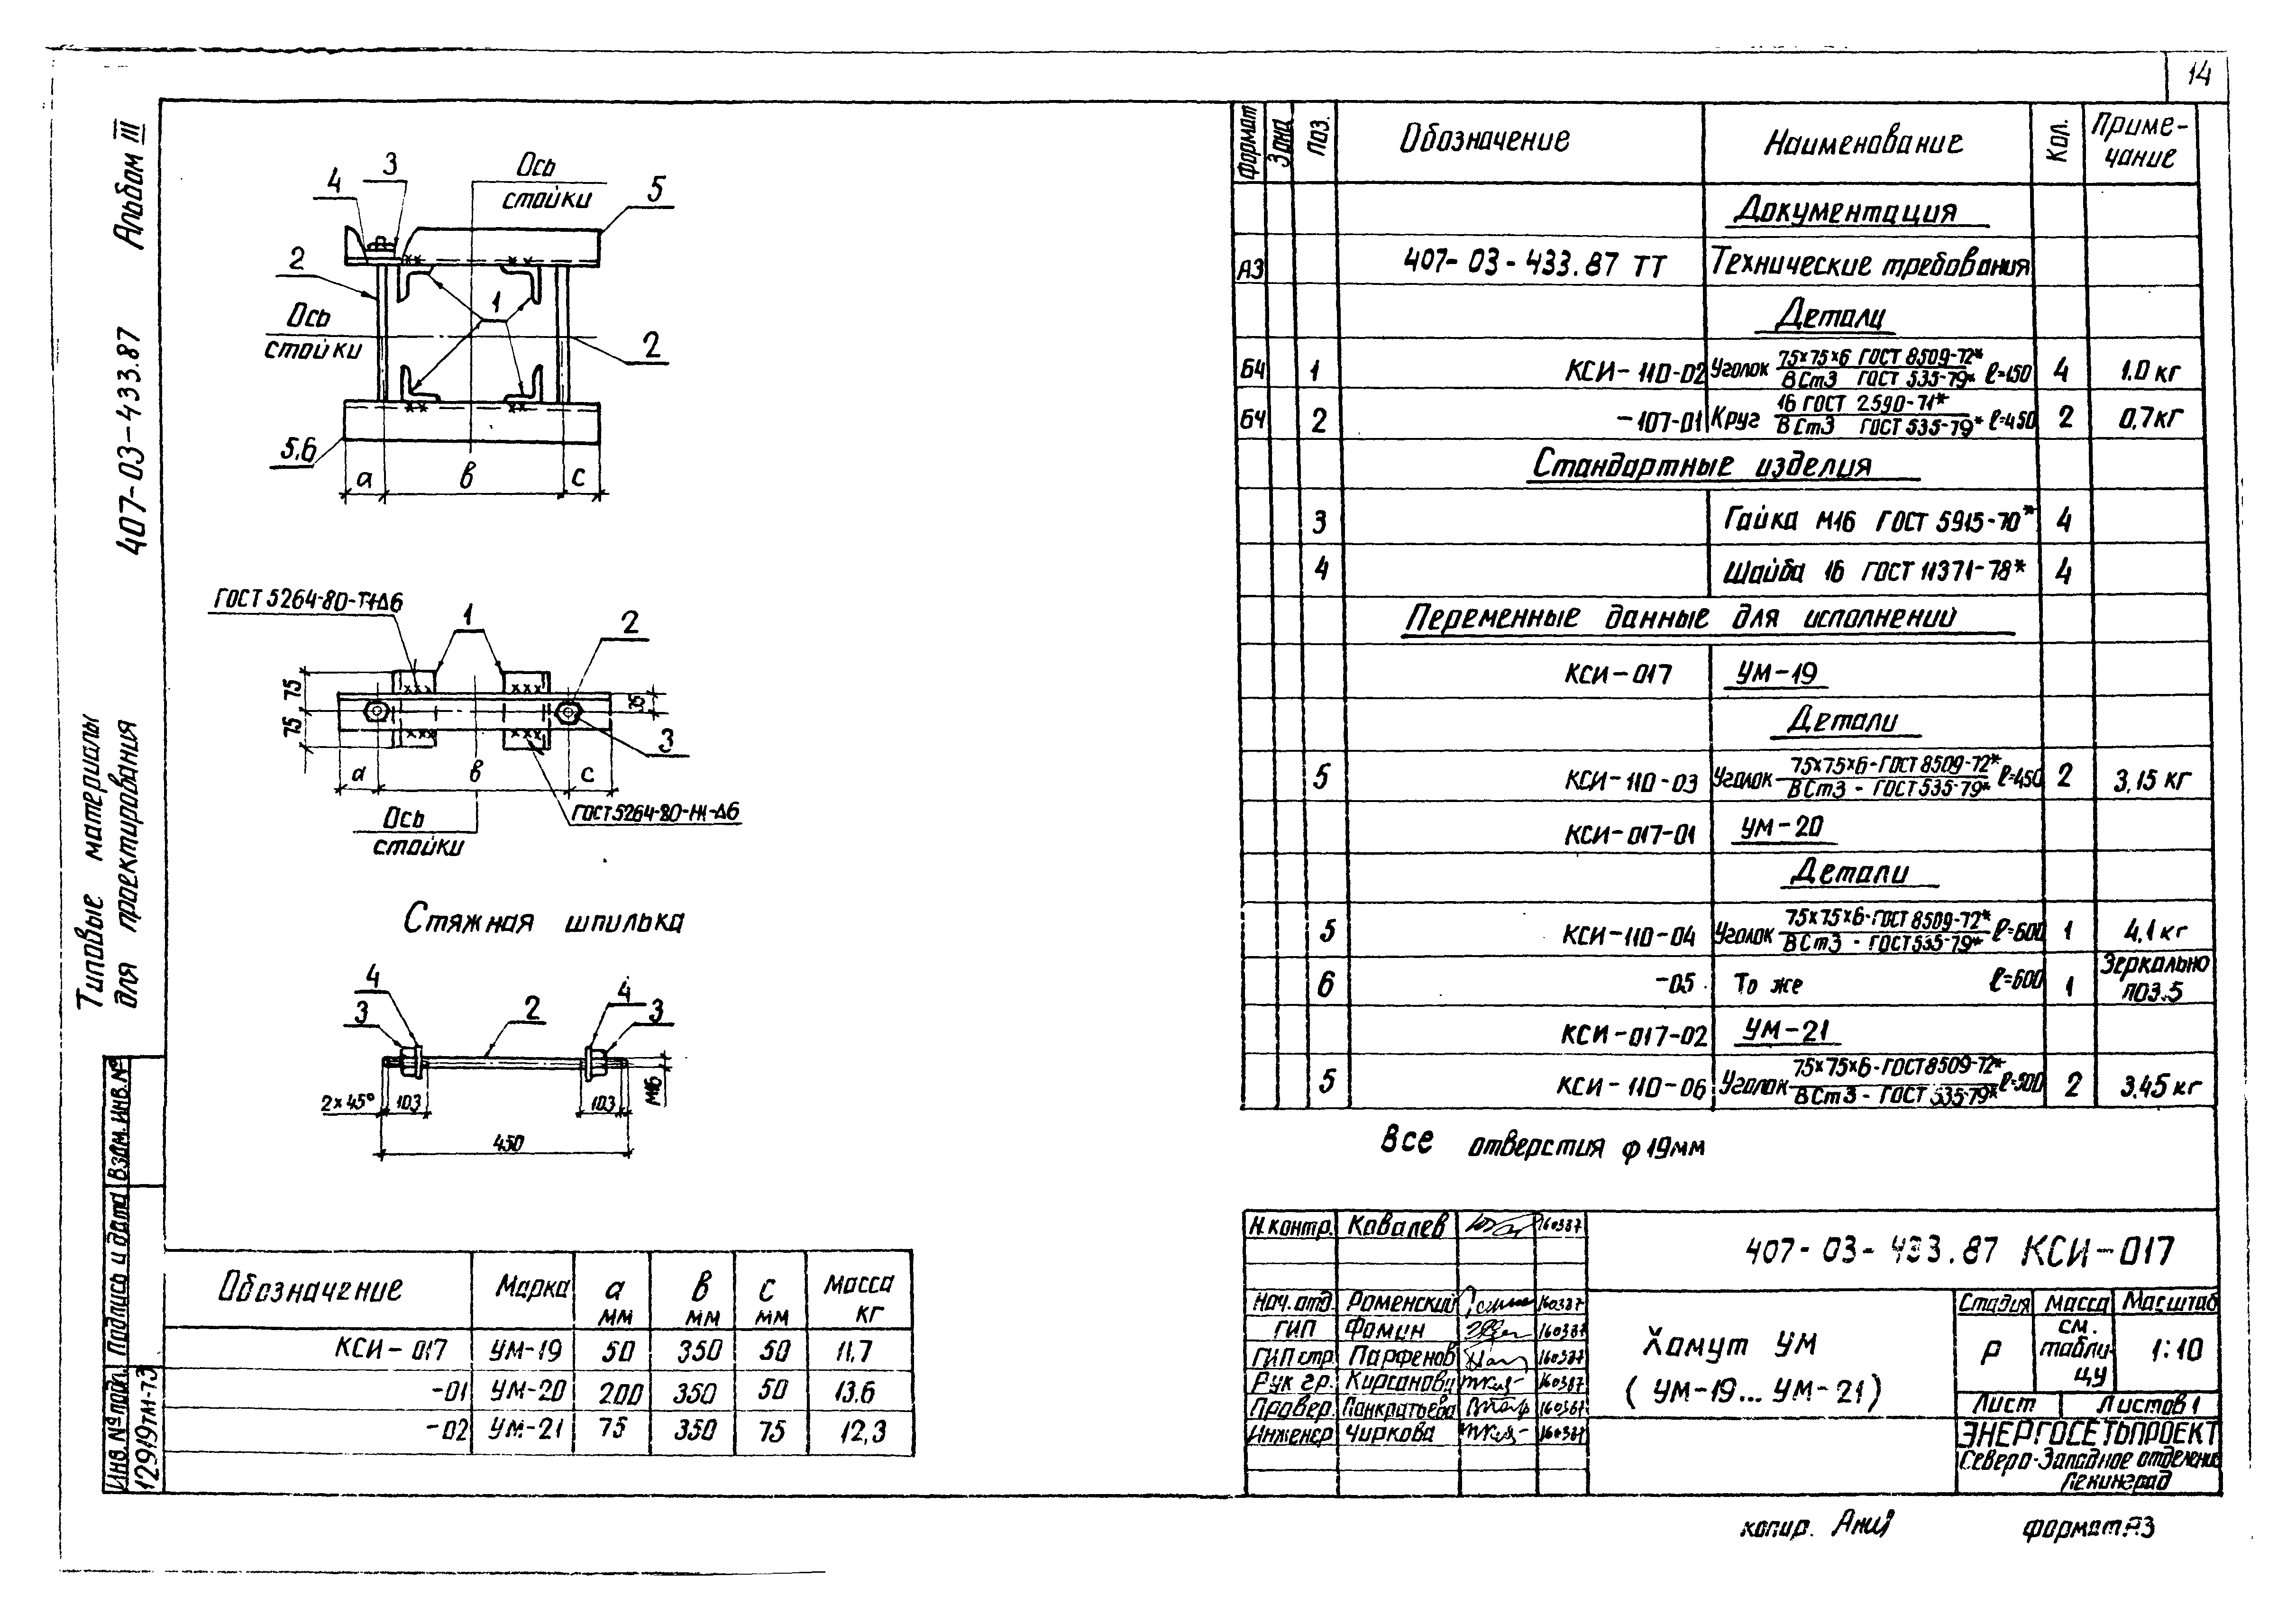 14
Альбом III
407-03-433.87
Типовые материалы
для проектирования
Взам. инв. №
Подпись и дата
Инв. № подл.
12919тм-т3
Ось
стойки
4
3
5
2
Ось
стойки
1
2
5,6
а
в
с
ГОСТ 5264-80-Т1-Δ6
1
2
75
75
35
3
а
в
с
Ось
стойки
ГОСТ 5264-80-Н1-Δ6
Стяжная шпилька
4
3
2
4
3
2×45°
103
103
М16
450
Обозначение Марка а мм в мм с мм Масса кг
КСИ-017 УМ-19 50 350 50 11,7
-01 УМ-20 200 350 50 13,6
-02 УМ-21 75 350 75 12,3
Формат Зона Поз. Обозначение Наименование Кол. Приме-
чание
Документация
А3 407-03-433.87 ТТ Технические требования
Детали
БЧ 1 КСИ-110-02 Уголок 75×75×6 ГОСТ 8509-72* / ВСт3 ГОСТ 535-79* ℓ=150 4 1.0 кг
БЧ 2 -107-01 Круг 16 ГОСТ 2590-71* / ВСт3 ГОСТ 535-79* ℓ=450 2 0,7кг
Стандартные изделия
3 Гайка М16 ГОСТ 5915-70* 4
4 Шайба 16 ГОСТ 11371-78* 4
Переменные данные для исполнений
КСИ-017 УМ-19
Детали
5 КСИ-110-03 Уголок 75×75×6-ГОСТ 8509-72* / ВСт3-ГОСТ 535-79* ℓ=450 2 3,15 кг
КСИ-017-01 УМ-20
Детали
5 КСИ-110-04 Уголок 75×75×6-ГОСТ 8509-72* / ВСт3-ГОСТ 535-79* ℓ=600 1 4,1 кг
6 -05 То же ℓ=600 1 Зеркально
поз.5
КСИ-017-02 УМ-21
5 КСИ-110-06 Уголок 75×75×6-ГОСТ 8509-72* / ВСт3-ГОСТ 535-79* ℓ=500 2 3,45 кг
Все отверстия φ19мм
Н.контр. Ковалев 160387
Нач.отд. Роменский 160387
ГИП Фомин 160387
ГИП стр. Парфенов 160387
Рук гр. Кирсанова 160387
Провер. Панкратьева 160387
Инженер Чиркова 160387
407-03-433.87 КСИ-017
Хомут УМ
(УМ-19...УМ-21)
Стадия Масса Масштаб
Р см. табли-
цу 1:10
Лист Листов 1
ЭНЕРГОСЕТЬПРОЕКТ
Северо-Западное отделение
Ленинград
копир.
формат А3